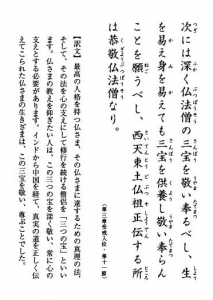 次には深く仏法僧の三宝を敬い奉るべし、生
を易え身を易えても三宝を供養し敬い奉らん
ことを願うべし、西天東土仏祖正伝する所
は恭敬仏法僧なり。
(第三章受戒入位・第十一節)
【訳文】最高の人格を持つ仏さま、その仏さまに達するための真理の法、
そして、その法を心の支えにして修行を続ける僧侶を「三つの宝」といい
ます。仏さまの教えを仰ぎたい人は、この三つの宝を深く敬い、常に心の
支えとする必要があります。インドから中国を経て、真実の道を正しく伝
えてこられた仏さまの生きざまは、この三宝を敬い、尊ぶことでした。